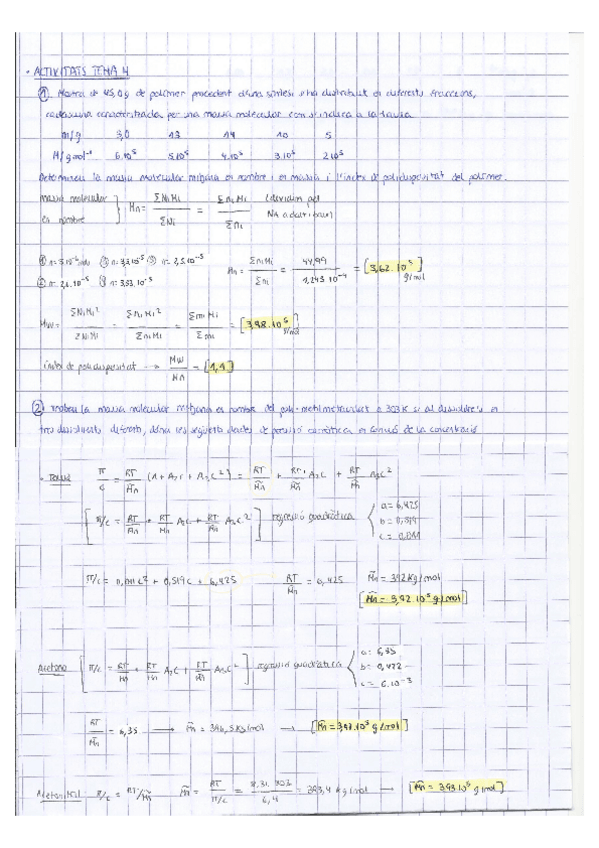 • ACTIVITATS TEMA 4
① Mostra de 45,0 g de polímer procedent d'una síntesi s'ha distribuït en diferents fraccions,
cadascuna caracteritzada per una massa molecular com s'indica a la taula.
m/g 3,0 13 14 10 5
M/g mol⁻¹ 6.10⁵ 5.10⁵ 4.10⁵ 3.10⁵ 2.10⁵
Determineu la massa molecular mitjana en nombre i en massa i l'índex de polidispersitat del polímer.
massa molecular en nombre } Mn = ΣNiMi / ΣNi = ΣniMi / Σni (dividim pel NA a dalt i baix)
Mn = ΣniMi / Σni = 44,99 / 1,243.10⁻⁴ = [3,62.10⁵] g/mol
MW = ΣNiMi² / ΣNiMi = ΣniMi² / ΣniMi = ΣmiMi / Σmi = [3,98.10⁵] g/mol
índex de polidispersitat → MW / Mn = [1,1]
② Trobeu la massa molecular mitjana en nombre del poli-metilmetacrilat a 303 K si al dissoldre's en
tres dissolvents diferents, dóna les següents dades de pressió osmòtica en funció de la concentració
π/c = RT/M̄n (1 + A₂c + A₃c²) = RT/M̄n + RT/M̄n A₂c + RT/M̄n A₃c²
[π/c = RT/M̄n + RT/M̄n A₂c + RT/M̄n A₃c²] regressió quadràtica { a = 6,425
b = 0,519
c = 0,011
π/c = 0,011c² + 0,519c + 6,425 RT/M̄n = 6,425 M̄n = 392 kg/mol
[M̄n = 3,92.10⁵ g/mol]
Acetona [π/c = RT/M̄n + RT/M̄n A₂c + RT/M̄n A₃c²] regressió quadràtica { a = 6,35
b =
c = 6.10⁻³
RT/M̄n = 6,35 → M̄n = 396,5 kg/mol → [M̄n = 3,97.10⁵ g/mol]
Acetonitril π/c = RT/M̄n M̄n = RT / π/c = 8,31.303 / 6,4 = 393,4 kg/mol → [M̄n = 3,93.10⁵ g/mol]